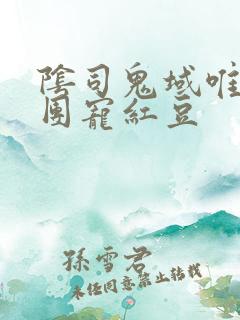 陰司鬼域唯
團寵紅豆
孫雪君
未經同意禁止轉載